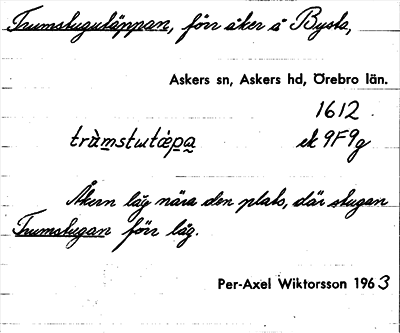 Trumstugutäppan, förr åker å Bysta,
Askers sn, Askers hd, Örebro län.
1612
trùmstutæ̀pa ek 9F9g
Åkern låg nära den plats, där stugan
Trumstugan förr låg.
Per-Axel Wiktorsson 1963